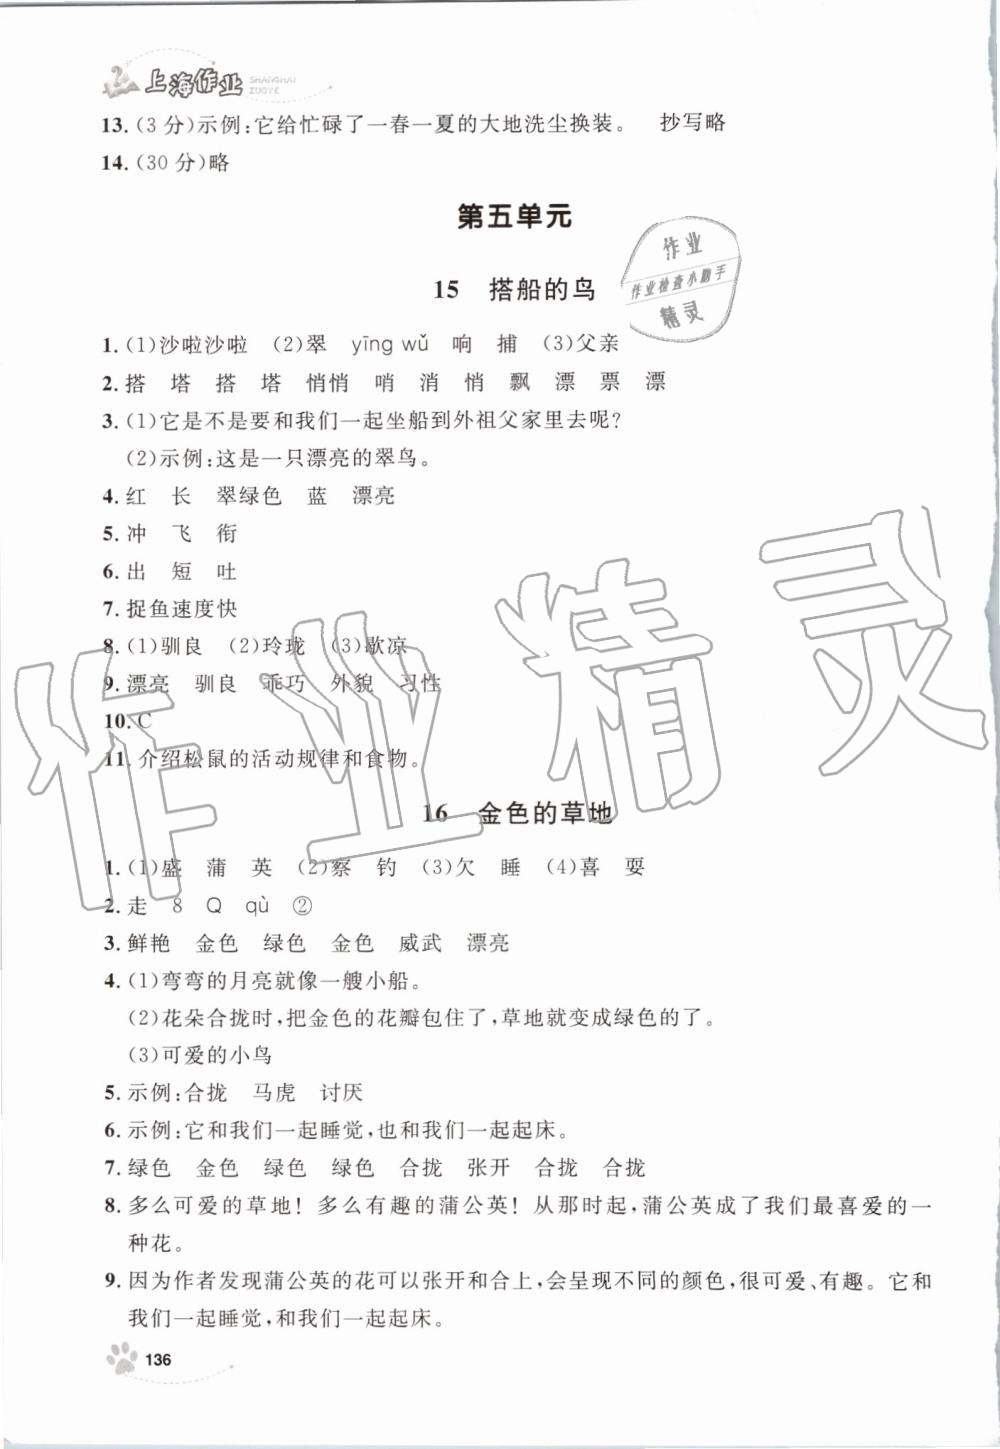 上海作业
SHANGHAI
ZUOYE
13.(3分)示例:它给忙碌了一春一夏的大地洗尘换装。 抄写略
14.(30分)略
第五单元
作业
作业检查小助手
精灵
15 搭船的鸟
1.(1)沙啦沙啦 (2)翠 yīng wǔ 响 捕 (3)父亲
2. 搭 塔 搭 塔 悄悄 哨 消 悄 飘 漂 票 漂
3.(1)它是不是要和我们一起坐船到外祖父家里去呢?
(2)示例:这是一只漂亮的翠鸟。
4. 红 长 翠绿色 蓝 漂亮
5. 冲 飞 衔
6. 出 短 吐
7. 捉鱼速度快
8.(1)驯良 (2)玲珑 (3)歇凉
9. 漂亮 驯良 乖巧 外貌 习性
10. C
11. 介绍松鼠的活动规律和食物。
作业精灵
16 金色的草地
1.(1)盛 蒲 英 (2)察 钓 (3)欠 睡 (4)喜 耍
2. 走 8 Q qù ②
3. 鲜艳 金色 绿色 金色 威武 漂亮
4.(1)弯弯的月亮就像一艘小船。
(2)花朵合拢时,把金色的花瓣包住了,草地就变成绿色的了。
(3)可爱的小鸟
5. 示例:合拢 马虎 讨厌
6. 示例:它和我们一起睡觉,也和我们一起起床。
7. 绿色 金色 绿色 绿色 合拢 张开 合拢 合拢
8. 多么可爱的草地! 多么有趣的蒲公英! 从那时起,蒲公英成了我们最喜爱的一
种花。
9. 因为作者发现蒲公英的花可以张开和合上,会呈现不同的颜色,很可爱、有趣。它和
我们一起睡觉,和我们一起起床。
136